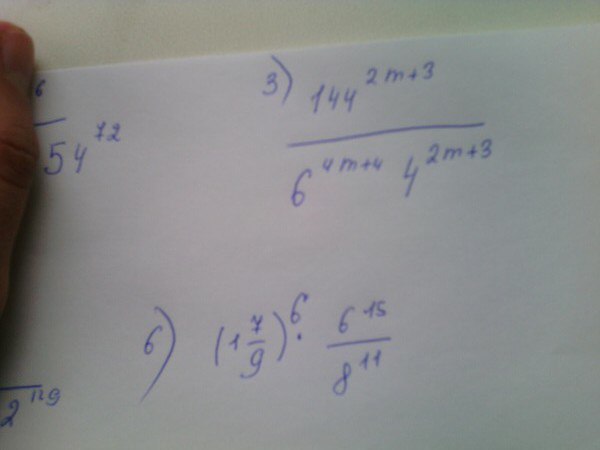 6
54^72
3) 144^(2m+3)
6^(4m+4) 4^(2m+3)
6) (1 7/9)^6 · 6^15
8^11